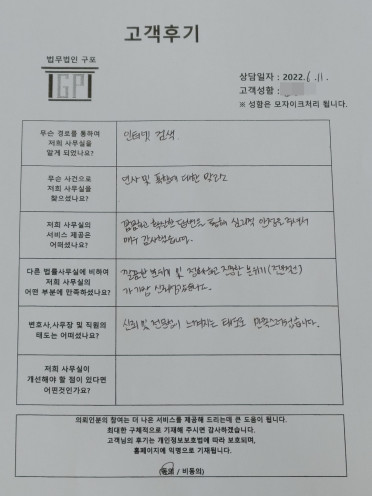 고객후기
법무법인 구포
GP
상담일자 : 2022. 6. 11.
고객성함 :
※ 성함은 모자이크처리 됩니다.
무슨 경로를 통하여
저희 사무실을
알게 되었나요?
인터넷 검색
무슨 사건으로
저희 사무실을
찾으셨나요?
민사 및 대한
저희 사무실의
서비스 제공은
어떠셨나요?
꼼꼼하고 확실한 답변으로 통해 심리적 안정을 주셔서
매우 감사했습니다.
다른 법률사무실에 비하여
저희 사무실의
어떤 부분에 만족하셨나요?
깔끔한 및 분위기
가 가장
변호사,사무장 및 직원의
태도는 어떠셨나요?
신뢰 및 전문성이 느껴지는 태도로 만족스러웠습니다.
저희 사무실이
개선해야 할 점이 있다면
어떤것인가요?
의뢰인분의 참여는 더 나은 서비스를 제공해 드리는데 큰 도움이 됩니다.
최대한 구체적으로 기재해 주시면 감사하겠습니다.
고객님의 후기는 개인정보보호법에 따라 보호되며,
홈페이지에 익명으로 기재됩니다.
(동의 / 비동의)